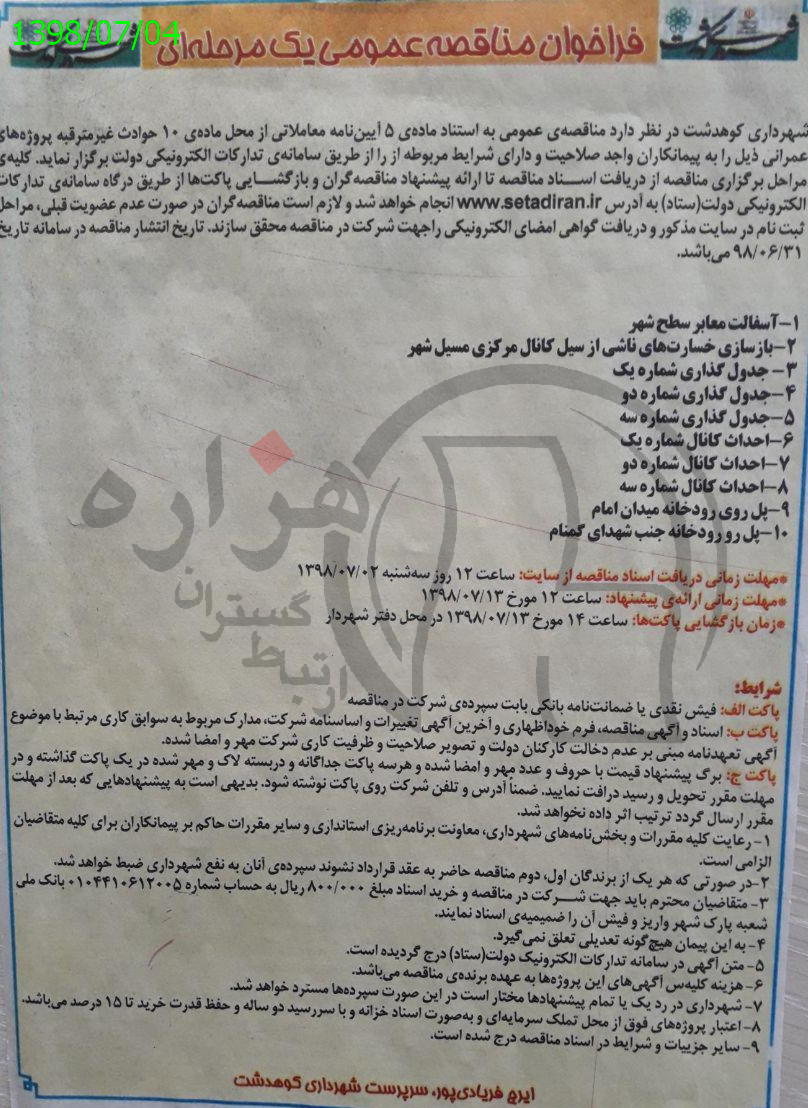 1398/07/04
فراخوان مناقصه عمومی یک مرحله‌ای
شهرداری کوهدشت در نظر دارد مناقصه‌ی عمومی به استناد ماده‌ی ۵ آیین‌نامه معاملاتی از محل ماده‌ی ۱۰ حوادث غیرمترقبه پروژه‌های
عمرانی ذیل را به پیمانکاران واجد صلاحیت و دارای شرایط مربوطه از را از طریق سامانه‌ی تدارکات الکترونیکی دولت برگزار نماید. کلیه‌ی
مراحل برگزاری مناقصه از دریافت اسناد مناقصه تا ارائه پیشنهاد مناقصه‌گران و بازگشایی پاکت‌ها از طریق درگاه سامانه‌ی تدارکات
الکترونیکی دولت(ستاد) به آدرس www.setadiran.ir انجام خواهد شد و لازم است مناقصه‌گران در صورت عدم عضویت قبلی، مراحل
ثبت نام در سایت مذکور و دریافت گواهی امضای الکترونیکی راجهت شرکت در مناقصه محقق سازند. تاریخ انتشار مناقصه در سامانه تاریخ
۹۸/۰۶/۳۱ می‌باشد.
۱-آسفالت معابر سطح شهر
۲-بازسازی خسارت‌های ناشی از سیل کانال مرکزی مسیل شهر
۳- جدول گذاری شماره یک
۴-جدول گذاری شماره دو
۵-جدول گذاری شماره سه
۶-احداث کانال شماره یک
۷-احداث کانال شماره دو
۸-احداث کانال شماره سه
۹-پل روی رودخانه میدان امام
۱۰-پل رو رودخانه جنب شهدای گمنام
هزاره
گستران
ارتباط
*مهلت زمانی دریافت اسناد مناقصه از سایت: ساعت ۱۲ روز سه‌شنبه ۱۳۹۸/۰۷/۰۲
*مهلت زمانی ارائه‌ی پیشنهاد: ساعت ۱۲ مورخ ۱۳۹۸/۰۷/۱۳
*زمان بازگشایی پاکت‌ها: ساعت ۱۴ مورخ ۱۳۹۸/۰۷/۱۳ در محل دفتر شهردار
شرایط:
پاکت الف: فیش نقدی یا ضمانت‌نامه بانکی بابت سپرده‌ی شرکت در مناقصه
پاکت ب: اسناد و آگهی مناقصه، فرم خوداظهاری و آخرین آگهی تغییرات و اساسنامه شرکت، مدارک مربوط به سوابق کاری مرتبط با موضوع
آگهی تعهدنامه مبنی بر عدم دخالت کارکنان دولت و تصویر صلاحیت و ظرفیت کاری شرکت مهر و امضا شده.
پاکت ج: برگ پیشنهاد قیمت با حروف و عدد مهر و امضا شده و هرسه پاکت جداگانه و دربسته لاک و مهر شده در یک پاکت گذاشته و در
مهلت مقرر تحویل و رسید درافت نمایید. ضمناً آدرس و تلفن شرکت روی پاکت نوشته شود. بدیهی است به پیشنهادهایی که بعد از مهلت
مقرر ارسال گردد ترتیب اثر داده نخواهد شد.
۱- رعایت کلیه مقررات و بخش‌نامه‌های شهرداری، معاونت برنامه‌ریزی استانداری و سایر مقررات حاکم بر پیمانکاران برای کلیه متقاضیان
الزامی است.
۲-در صورتی که هر یک از برندگان اول، دوم مناقصه حاضر به عقد قرارداد نشوند سپرده‌ی آنان به نفع شهرداری ضبط خواهد شد.
۳- متقاضیان محترم باید جهت شرکت در مناقصه و خرید اسناد مبلغ ۸۰۰/۰۰۰ ریال به حساب شماره ۰۱۰۴۴۱۰۶۱۲۰۰۵ بانک ملی
شعبه پارک شهر واریز و فیش آن را ضمیمه‌ی اسناد نمایند.
۴- به این پیمان هیچ‌گونه تعدیلی تعلق نمی‌گیرد.
۵- متن آگهی در سامانه تدارکات الکترونیک دولت(ستاد) درج گردیده است.
۶- هزینه کلیه‌س آگهی‌های این پروژه‌ها به عهده برنده‌ی مناقصه می‌باشد.
۷- شهرداری در رد یک یا تمام پیشنهادها مختار است در این صورت سپرده‌ها مسترد خواهد شد.
۸- اعتبار پروژه‌های فوق از محل تملک سرمایه‌ای و به‌صورت اسناد خزانه و با سررسید دو ساله و حفظ قدرت خرید تا ۱۵ درصد می‌باشد.
۹- سایر جزییات و شرایط در اسناد مناقصه درج شده است.
ایرج فریادی‌پور، سرپرست شهرداری کوهدشت